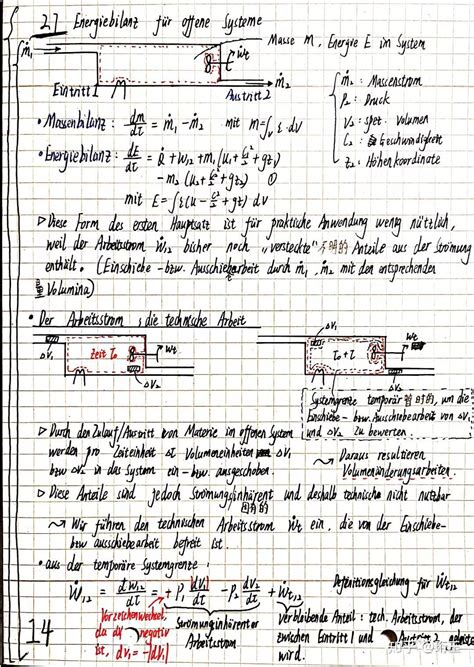 2.7 Energiebilanz für offene Systeme
Masse m, Energie E im System
ṁ₁
Ẇt
Eintritt 1
Austritt 2
ṁ₂
ṁ₂ : Massenstrom
P₂ : Druck
V₂ : spez. Volumen
C₂ : Geschwindigkeit
Z₂ : Höhenkoordinate
• Massenbilanz: dm/dt = ṁ₁ - ṁ₂ mit m = ∫v ρ dV
• Energiebilanz: dE/dt = Q̇ + Ẇ₁₂ + ṁ₁ (u₁ + c₁²/2 + gz₁)
- ṁ₂ (u₂ + c₂²/2 + gz₂) ①
mit E = ∫ρ(u - c²/2 + gz) dV
▷ Diese Form des ersten Hauptsatz ist für praktische Anwendung wenig nützlich,
weil der Arbeitsstrom Ẇ₁₂ bisher noch „versteckte" 不明的 Anteile aus der Strömung
enthält. (Einschiebe- bzw. Ausschiebearbeit durch ṁ₁, ṁ₂ mit den entsprechenden
Volumina)
• Der Arbeitsstrom, die technische Arbeit
ΔV₁
zeit τ₀
Wt
ΔV₂
ΔV₁
τ₀ + τ
Wt
ΔV₂
Systemgrenze temporär 暂时的, um die
Einschiebe- bzw. Ausschiebearbeit von ΔV₁
und ΔV₂ zu bewerten
▷ Durch den Zulauf/Austritt von Materie im offenen System
werden pro Zeiteinheit dt Volumeneinheiten ΔV₁
bzw ΔV₂ in das System ein- bzw. ausgeschoben.
→ Daraus resultieren
Volumenänderungsarbeiten.
▷ Diese Anteile sind jedoch Strömungsinhärent und deshalb technische nicht nutzbar
固有的
→ Wir führen den technischen Arbeitsstrom Ẇt ein, die von der Einschiebe-
bzw ausschiebearbeit befreit ist.
• aus der temporäre Systemgrenze:
Ẇ₁₂ = dW₁₂/dt = + P₁ |dV₁|/dt - P₂ dV₂/dt + Ẇt₁₂
Definitionsgleichung für Ẇt₁₂
Vorzeichenwechsel,
da dV negativ
ist, dV₁ = -|dV₁|
Strömungsinhärenter
Arbeitsstrom
verbleibende Anteil: tech. Arbeitsstrom, der
zwischen Eintritt 1 und Austritt 2 geleistet
wird.
14